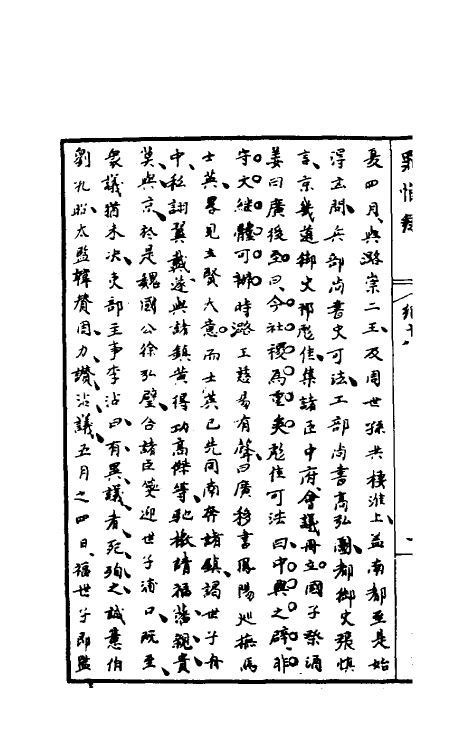 罪惟録
紀十八
一
憂四月與潞崇二王及周世孫共棲淮上葢南都至是始
得玄問兵部尚書史可法工部尚書高弘圖都御史張慎
言京畿道御史祁彪佳集諸臣中府會議冊立國子祭酒
姜曰廣後至曰今社稷爲重彪佳可法曰中興之辟非
守文繼體可擬時潞王慈易有聲曰廣移書鳳陽巡撫馬
士英畧見立賢大意而士英已先同南奔諸鎮謁世子舟
中私詡翼戴遂與諸鎮黄得功高傑等馳檄請福藩親貴
莫與京於是魏國公徐弘璧合諸臣箋迎世子浦口既至
衆議猶未決吏部主事李沾曰有異議者死殉之誠意伯
劉孔昭太監韓贊周力讚沾議五月之四日福世子即監